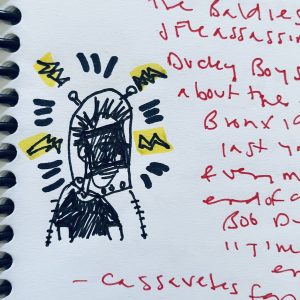 The Baldies
JFK assassin
Ducky Boys
about the
Bronx 19
last yo
every m
end of a
Bob D
"Tim
en
- Cassavetes fan